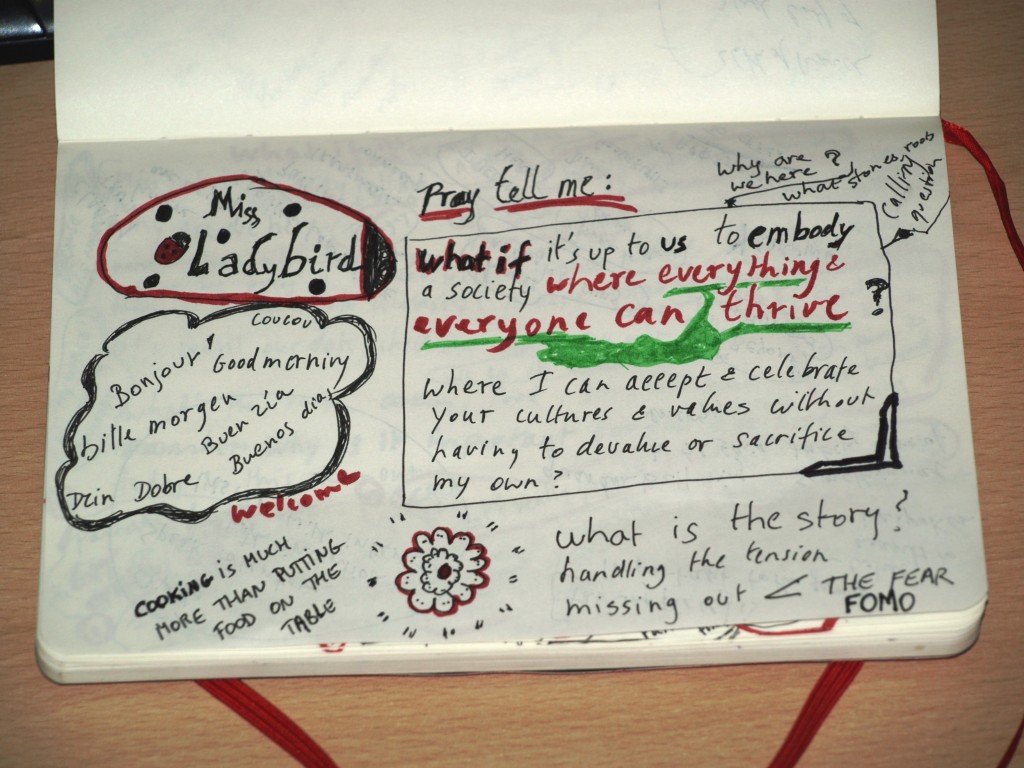 Miss
Ladybird
coucou
Bonjour
Good morning
bitte morgen
Buen zia
Buenos dias
Dzin Dobre
welcome
COOKING is MUCH
MORE THAN PUTTING
FOOD ON THE
TABLE
Pray tell me:
why are
we here?
what stories, roots
calling
question
what if it's up to us to embody
a society where everything &
everyone can thrive ?
where I can accept & celebrate
your cultures & values without
having to devalue or sacrifice
my own?
what is the story?
handling the tension
missing out < THE FEAR
FOMO